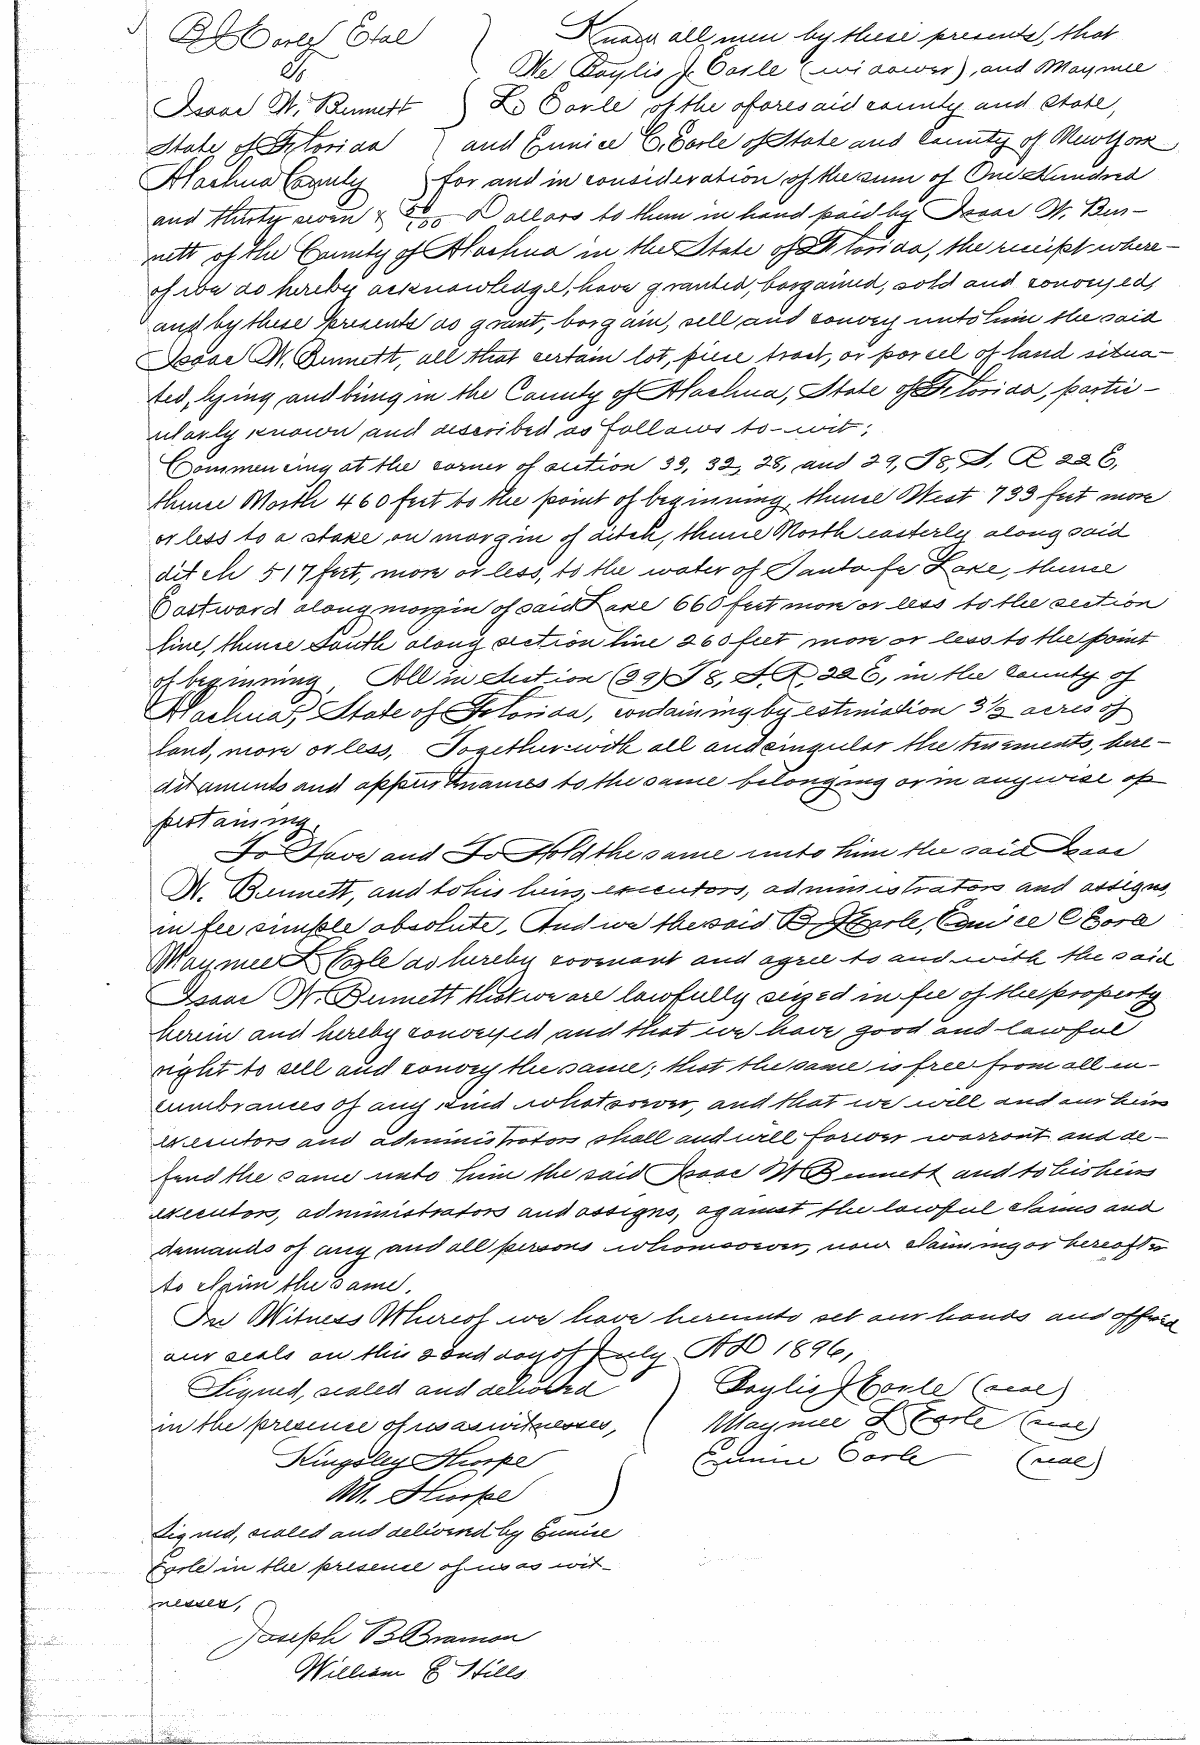 B J Earle Etal
To
Isaac W. Bennett
State of Florida
Alachua County
Know all men by these presents, that
We Baylis J. Earle (widower), and Maymee
L. Earle of the aforesaid county and state,
and Eunice C. Earle of State and County of New York
for and in consideration of the sum of One Hundred
and thirty seven & 50/100 Dollars to them in hand paid by Isaac W. Ben-
nett of the County of Alachua in the State of Florida, the reciept where-
of we do hereby acknowledge, have granted, bargained, sold and conveyed,
and by these presents do grant, bargain, sell and convey unto him the said
Isaac W. Bennett, all that certain lot, piece tract, or parcel of land situa-
ted, lying and being in the County of Alachua, State of Florida, partic-
ularly known and described as follows to-wit;
Commencing at the corner of section 33, 32, 28, and 29, T8, S, R 22 E,
thence North 460 feet to the point of beginning, thence West 733 feet more
or less to a stake on margin of ditch, thence North easterly along said
ditch 517 feet, more or less, to the water of Santa fe Lake, thence
Eastward along margin of said Lake 660 feet more or less to the section
line, thence South along section line 260 feet more or less to the point
of beginning, All in Section (29) T8, S. R. 22 E, in the County of
Alachua, State of Florida, containing by estimation 3½ acres of
land, more or less, Together with all and singular the tenements, here-
ditaments and appurtenances to the same belonging or in anywise ap
pertaining.
To Have and To Hold the same unto him the said Isaac
W. Bennett, and to his heirs, executors, administrators and assigns,
in fee simple absolute. And we the said B J Earle, Eunice C Earle
Maymee L Earle do hereby covenant and agree to and with the said
Isaac W. Bennett that we are lawfully seized in fee of the property
herein and hereby conveyed and that we have good and lawful
right to sell and convey the same; that the same is free from all in-
cumbrances of any kind whatsoever, and that we will and our heirs
executors and administrators shall and will forever warrant and de-
fend the same unto him the said Isaac W Bennett and to his heirs
executors, administrators and assigns, against the lawful claims and
demands of any and all persons whomsoever, now claiming or hereafter
to claim the same.
In Witness Whereof we have hereunto set our hands and affixed
our seals on this 22nd day of July AD 1896,
Signed, sealed and delivered
in the presence of us as witnesses,
Kingsley Thorpe
M. Thorpe
Baylis J Earle (seal)
Maymee L Earle (seal)
Eunice Earle (seal)
Signed, sealed and delivered by Eunice
Earle in the presence of us as wit-
nesses,
Joseph B Bramon
William E Stills